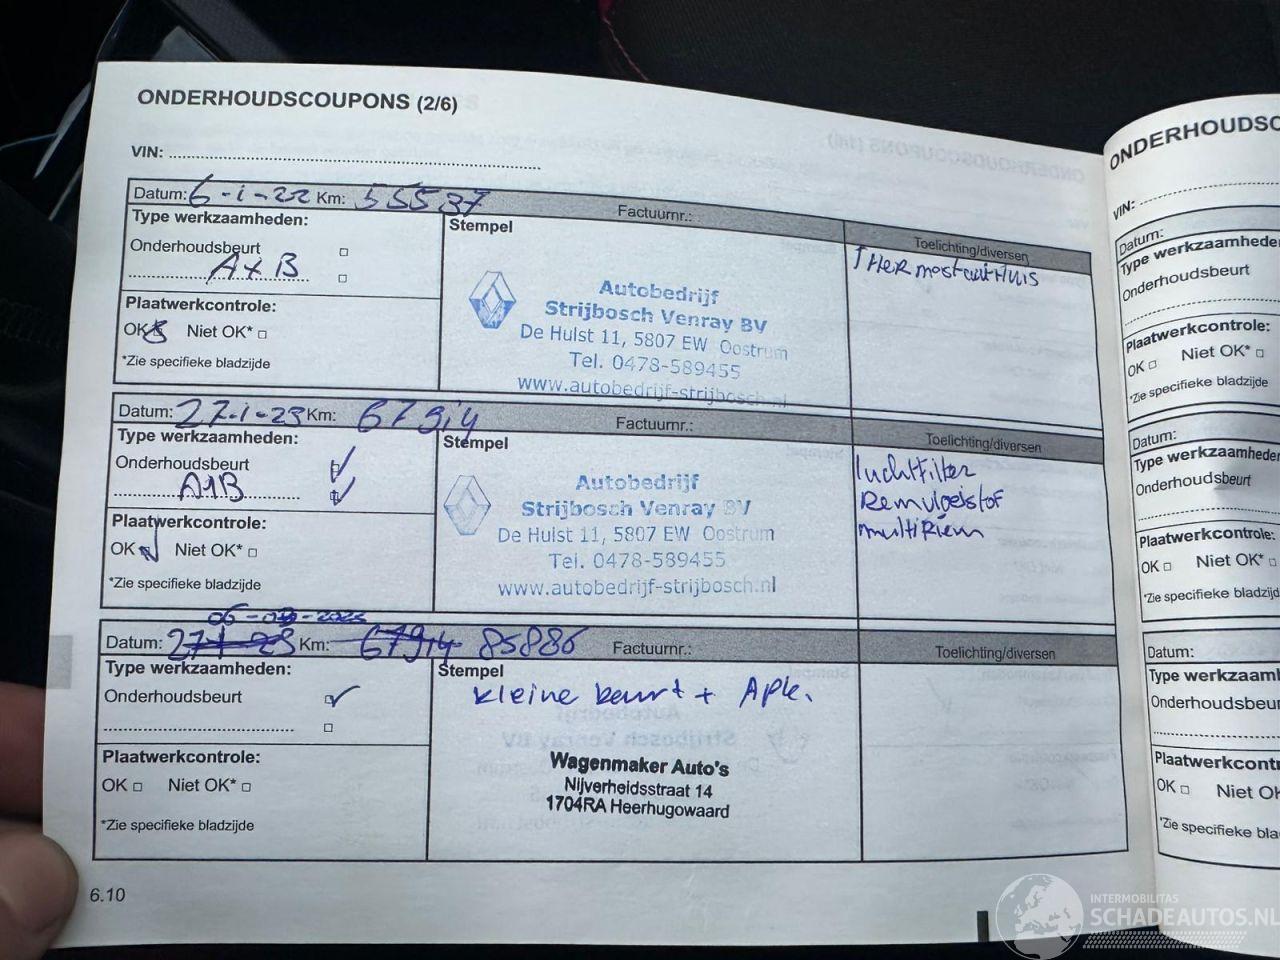 ONDERHOUDSCOUPONS (2/6)
VIN:
Datum: 6-1-22 Km: 55537 Factuurnr.:
Type werkzaamheden:
Stempel
Toelichting/diversen
Onderhoudsbeurt
A+B
THermostaatHuis
Plaatwerkcontrole:
OK Niet OK*
*Zie specifieke bladzijde
Autobedrijf
Strijbosch Venray BV
De Hulst 11, 5807 EW Oostrum
Tel. 0478-589455
www.autobedrijf-strijbosch.nl
Datum: 27-1-23 Km: 67914 Factuurnr.:
Type werkzaamheden:
Stempel
Toelichting/diversen
Onderhoudsbeurt
A+B
luchtfilter
Remvloeistof
multiRiem
Plaatwerkcontrole:
OK Niet OK*
*Zie specifieke bladzijde
Autobedrijf
Strijbosch Venray BV
De Hulst 11, 5807 EW Oostrum
Tel. 0478-589455
www.autobedrijf-strijbosch.nl
Datum: 27-1-23 Km: 67914 85886 Factuurnr.:
Type werkzaamheden:
Stempel
Toelichting/diversen
Onderhoudsbeurt
kleine beurt + APK.
Plaatwerkcontrole:
OK Niet OK*
*Zie specifieke bladzijde
Wagenmaker Auto's
Nijverheidsstraat 14
1704RA Heerhugowaard
6.10
ONDERHOUDSC
VIN:
Datum:
Type werkzaamhede
Onderhoudsbeurt
Plaatwerkcontrole:
OK Niet OK*
*Zie specifieke bladzijde
Datum:
Type werkzaamheden
Onderhoudsbeurt
Plaatwerkcontrole:
OK Niet OK*
*Zie specifieke bladzijd
Datum:
Type werkzaamh
Onderhoudsbeur
Plaatwerkcontr
OK Niet OK
*Zie specifieke bladz
INTERMOBILITAS
SCHADEAUTOS.NL